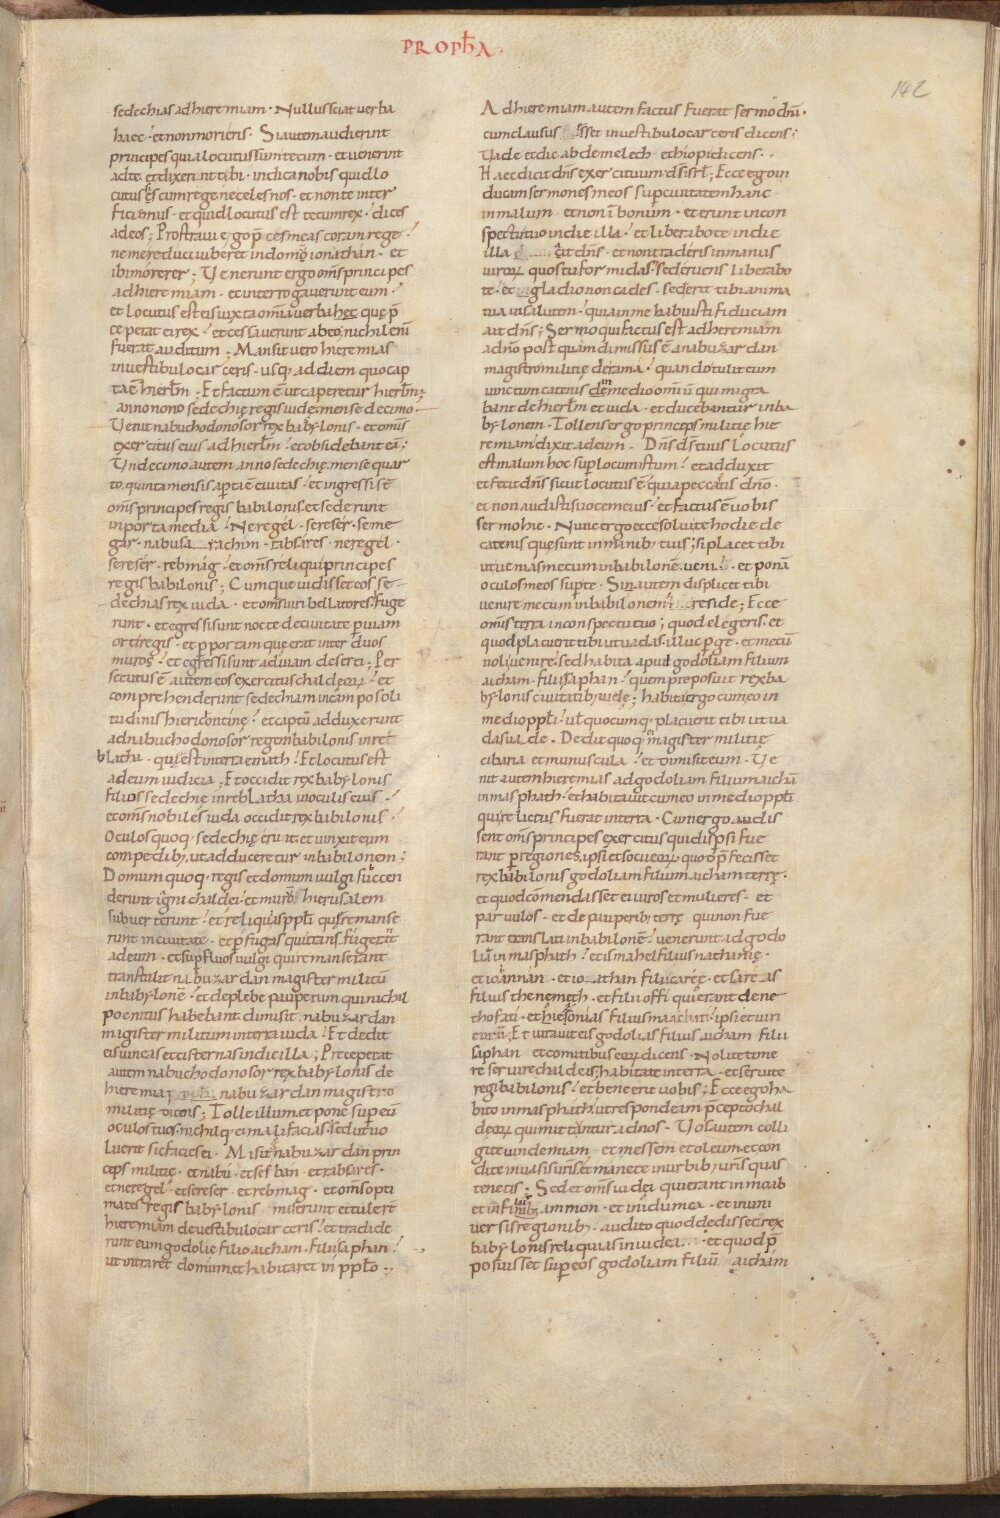 PROPhA·
142
sedechias adhieremiam· Nullus sciat uerba
haec· et non moriéris· Si autem audierint
principes quia locutus sum tecum· et uenerint
ad te et dixerint tibi· indica nobis quid lo
cutus es cum rege ne celes nos· et non te inter
ficiemus· et quid locutus est tecum rex· dices
ad eos; Prostraui ego p̄ces meas coram rege
ne me reduci iuberet in domū ionathán· et
ibi morerer; Uenerunt ergo om̄s principes
ad hieremiam· et interrogauerunt eum·
et locutus est eis iuxta omīa uerba hęc quę p̄
ceperat ei rex· et cessauerunt ab eo, nichil enī
fuerat auditum; Mansit uero hieremias
in uestibulo carceris· usq; ad diem quo cap
ta ē hierłm· Et factum ē ut caperetur hierłm;
anno nono sedechię regis iudę mense decimo
Uenit nabuchodonosor rex babylonis· et omīs
exercitus eius ad hierłm· et obsidebant eā;
Undecimo autem anno sedechię mense quar
to, quinta mensis apta ē ciuitas· et ingressi sē
om̄s principes regis babilonis et sederunt
in porta media· Neregél· seresér· seme
gár· nabusa rachim· rabsáres· neregél·
sereser· rebmág· et om̄s reliqui principes
regis babilonis; Cumque uidisset eos se
dechias rex iuda· et om̄s uiri bellatores· fuge
runt· et egressi sunt nocte de ciuitate p uiam
orti regis· et p portam quę erat inter duos
muros· et egressi sunt ad uiam deserti; Per
secutus ē autem eos exercitus chaldeoꝝ· et
comprehenderunt sedechiam in campo soli
tudinis hiericontinę· et captū adduxerunt
ad nabuchodonosor regem babilonis in re
blatha· quę est in terra emath· Et locutus est
ad eum iudicia; Et occidit rex babylonis
filios sedechię in reblatha in oculis eius·
et om̄s nobiles iuda occidit rex babilonis·
Oculos quoq; sedechię eruit· et uinxit eum
compedib; ut adduceretur in babilonem;
Domum quoq; regis et domum uulgi succen
derunt igni chaldei· et murū hierusalem
subuerterunt· et reliquias ppłi quę remanse
runt in ciuitate· et pfugas qui transfugerāt
ad eum· et supfluos uulgi qui remanserant
transtulit nabuzardan magister militū
in babylonē· et de plebe pauperum qui nichil
poenitus habebant dimisit nabuzardan
magister militum in terra iuda· Et dedit
eis uineas et cisternas in die illa; Preceperat
autem nabuchodonosor rex babylonis de
hieremia nabuzardan magistro
militię dicens; Tolle illum et pone super eū
oculos tuos nichilq; ei mali facias· sed ut uo
luerit sic facies ei· Misit nabuzardan prin
ceps militię· et nabu· et sesban· et rabsares·
et neregel· et sereser· et rebmag· et om̄s opti
mates regis babylonis miserunt et tulerū
hieremiam de uestibulo carceris· et tradide
runt eum godolię filio aicham· filii saphan·
ut intraret domum, et habitaret in ppło·
Adhieremiam autem factus fuerat sermo dn̄i·
cum clausus esset in uestibulo carceris dicens;
Uade et dic abdemelech ethiopi dicens·
Haec dicit dn̄s exercituum ds̄ isrł; Ecce ego in
ducam sermones meos sup ciuitatem hanc
in malum et non ī bonum· et erunt in con
spectu tuo in die illa· et liberabo te in die
illa ait dn̄s· et non traderis in manus
uiroꝝ quos tu formidas· sed eruens liberabo
te· et gladio non cades· sed erit tibi anima
tua in salutem· quia in me habuisti fiduciam
ait dn̄s; Sermo qui factus est ad heremiam
a dn̄o postquam dimissus ē a nabuzardan
magistro militię de rama· quando tulit eum
uinctum catenis in medio omīū qui migra
bant de hierłm et iuda· et ducebantur in ba
bylonem· Tollens ergo princeps militię hie
remiam dixit ad eum· Dn̄s ds̄ tuus locutus
est malum hoc sup locum istum· et adduxit
et fecit dn̄s sicut locutus ē quia peccastis dn̄o·
et non audistis uocem eius· et factus ē uobis
sermo hic· Nunc ergo ecce solui te hodie de
catenis quę sunt in manib; tuis; si placet tibi
ut uenias mecum in babilonē· ueni· et ponā
oculos meos sup te· Sin autem displicet tibi
uenire mecum in babilonem· reside; Ecce
omīs terra in conspectu tuo; quod elegeris· et
quo placuerit tibi ut uadas· illuc pge· et mecū
noli uenire· sed habita apud godoliam filium
aicham· filii saphan· quem proposuit rex ba
bylonis ciuitatib; iudę; habita ergo cum eo in
medio ppłi· uł quocumq; placuerit tibi ut ua
das uade· Dedit quoq; ei magister militię
cibaria et munuscula· et dimisit eum· Ue
nit autem hieremias ad godoliam filium aichā
in masphath· et habitauit cum eo in medio ppłi
qui relictus fuerat in terra· Cumergo audis
sent om̄s principes exercitus qui dispsi fue
rant p regiones, ipsi et socii eoꝝ quod p̄fecisset
rex babilonis godoliam filium aicham terrę·
et quod cōmendasset ei uiros et mulieres· et
paruulos· et de pauperib; terrę qui non fue
rant translati in babilonē· uenerunt ad godo
liā in masphath· et ismahel filius nathanię·
et ioannan· et ionathan filii caree· et sareas
filius thenemeth· et filii offi qui erant de ne
thofati· et hiezonias filius maachati· ipsi et uiri
eorū· Et iurauit eis godolias filius aicham filii
saphan et comitibus eoꝝ dicens· Nolite time
re seruire chaldeis, habitate in terra· et seruite
regi babilonis· et bene erit uobis; Ecce ego ha
bito in masphath· ut respondeam p̄cepto chal
deoꝝ qui mittuntur ad nos· Uos autem colli
gite uindemiam et messem et oleum· et con
dite in uasis uris· et manete in urbib; uris quas
tenetis; Sed et om̄s iudei qui erant in moab
et in finib; ammon· et in idumea· et in uni
uersis regionib; audito quod dedisset rex
babylonis reliquias in iudea· et quod p̄
posuisset super eos godoliam filiū aicham